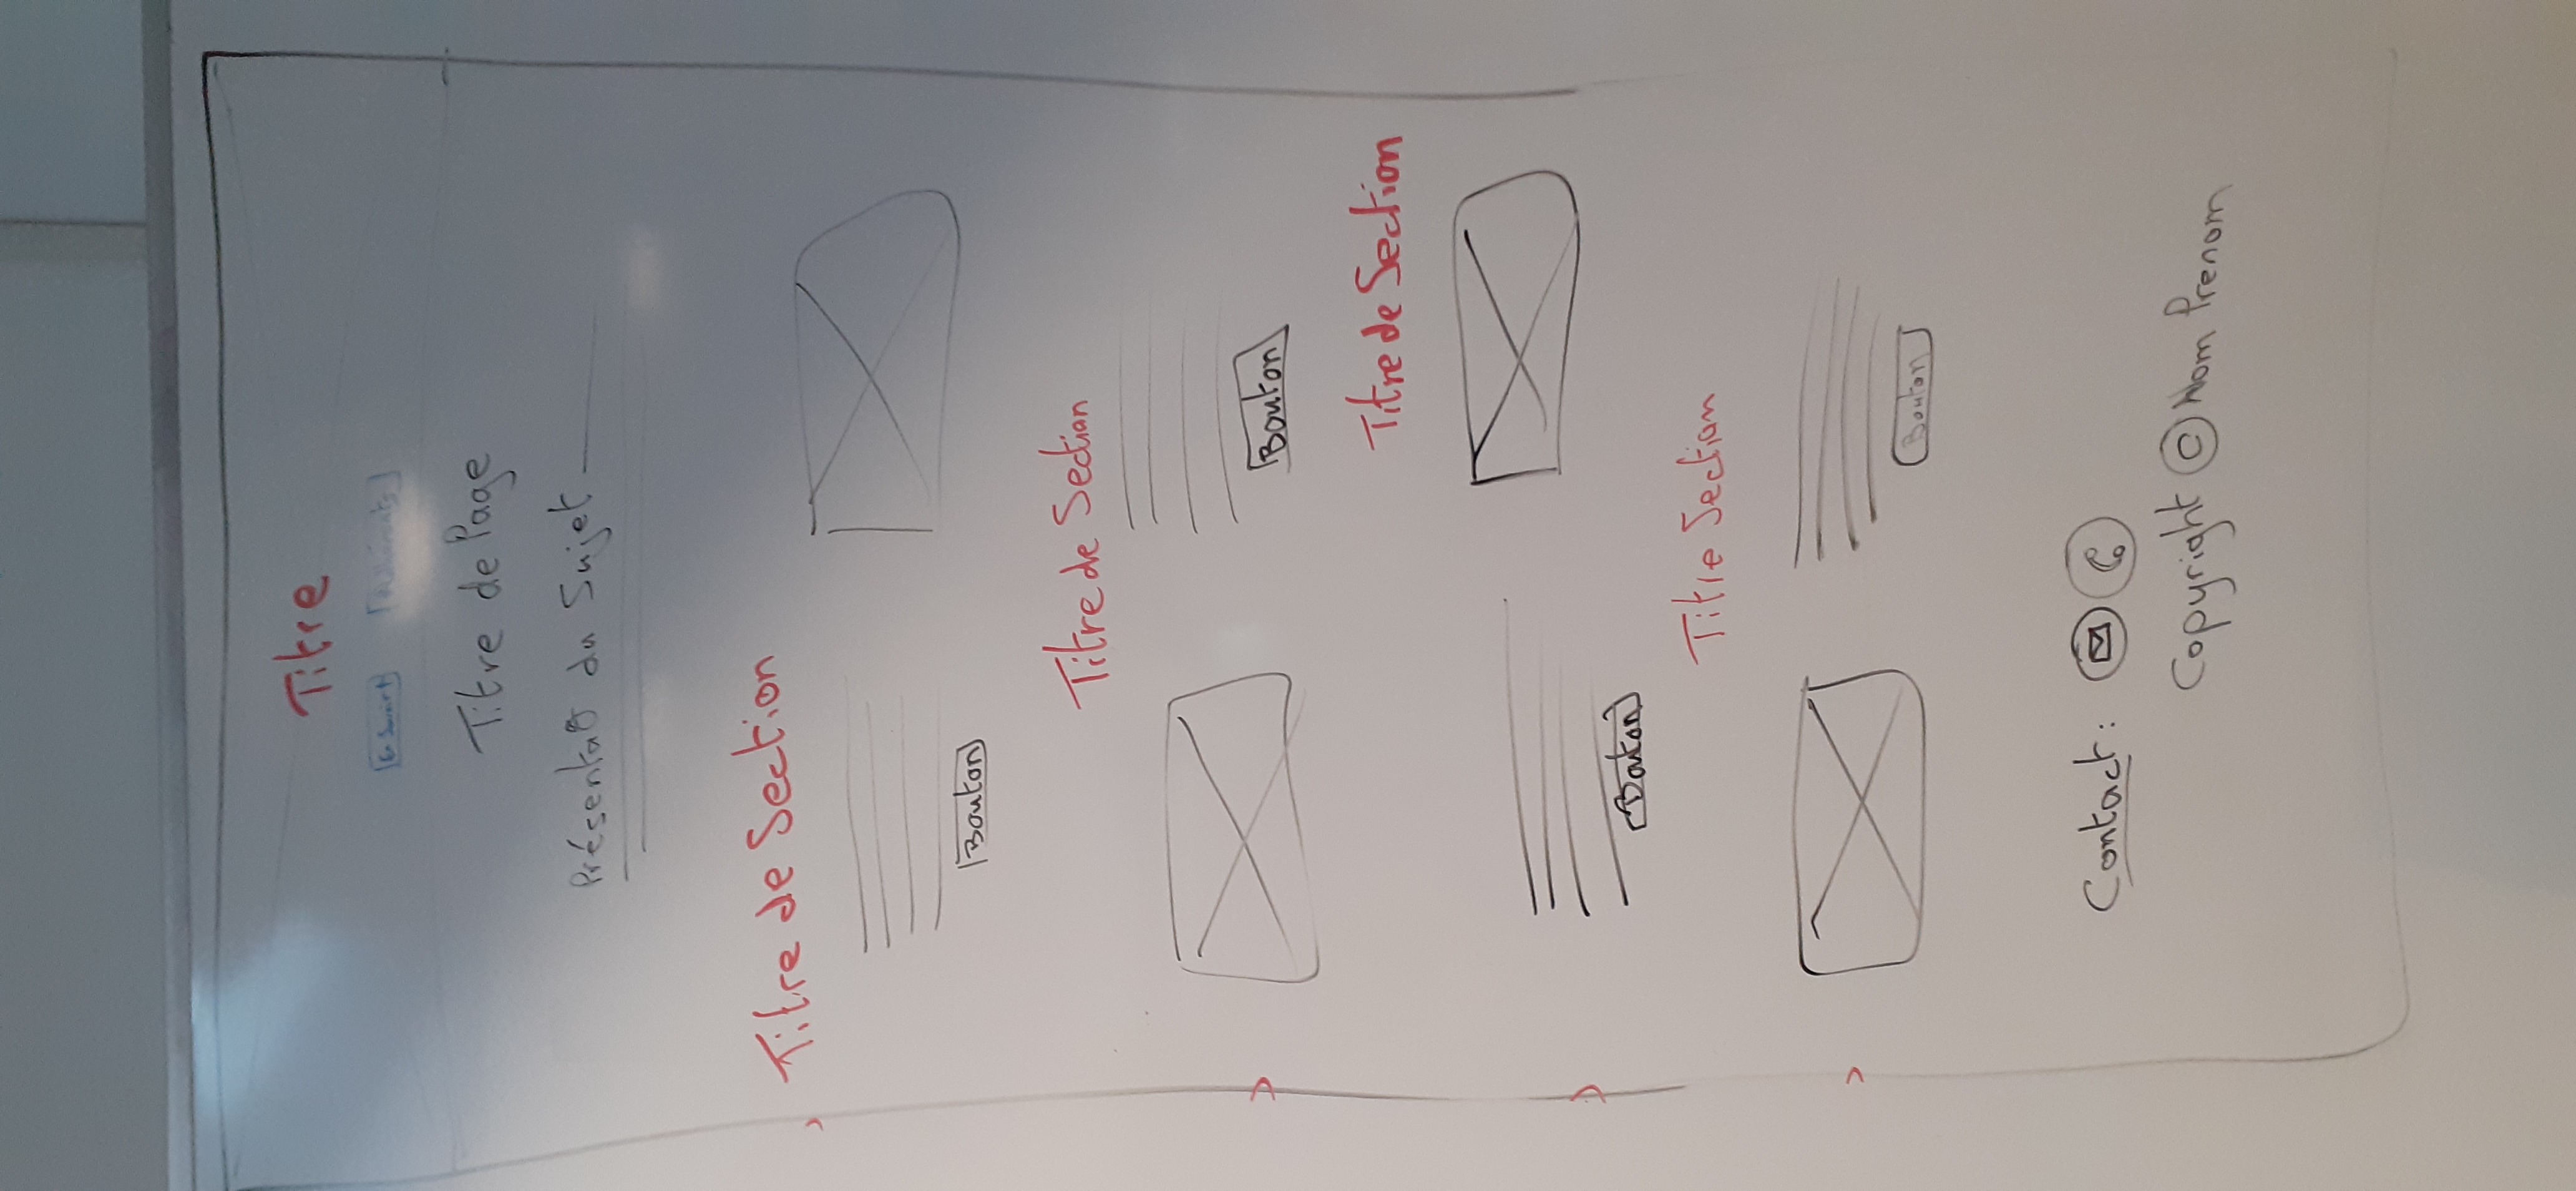 Titre
Titre de Page
Présentat° du Sujet
Titre de Section
Bouton
Titre de Section
Bouton
Titre de Section
Bouton
Titre Section
Bouton
Contact :
Copyright © Nom Prenom